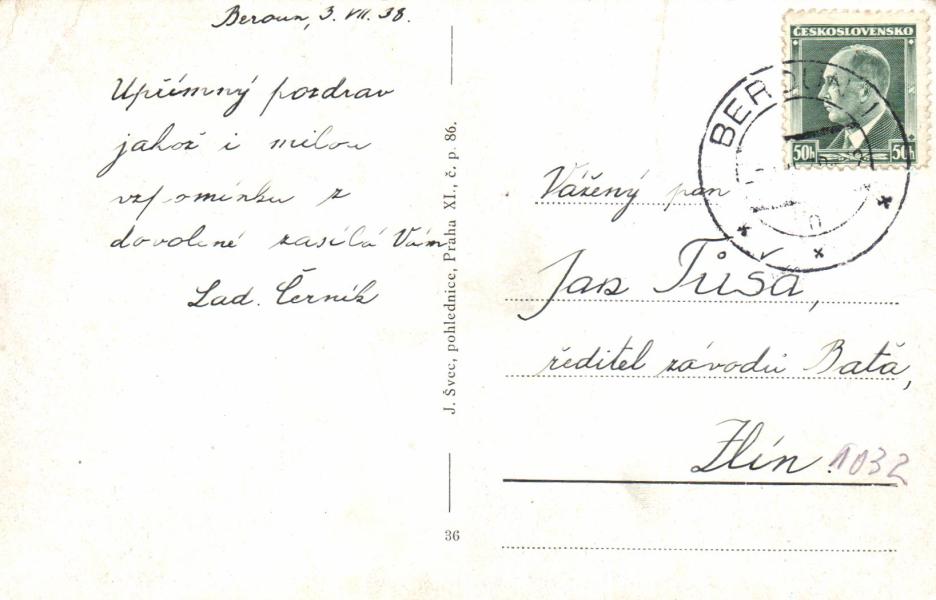 Beroun, 3. VII. 38.
Upřímný pozdrav
jakož i milou
vzpomínku z
dovolené zasílá Vám
Lad. Černík
J. Švec, pohlednice, Praha XI., č. p. 86.
36
ČESKOSLOVENSKO
50h 50h
BEROUN 1
Vážený pan
Jan Tůša,
ředitel závodů Baťa,
Zlín.
1032